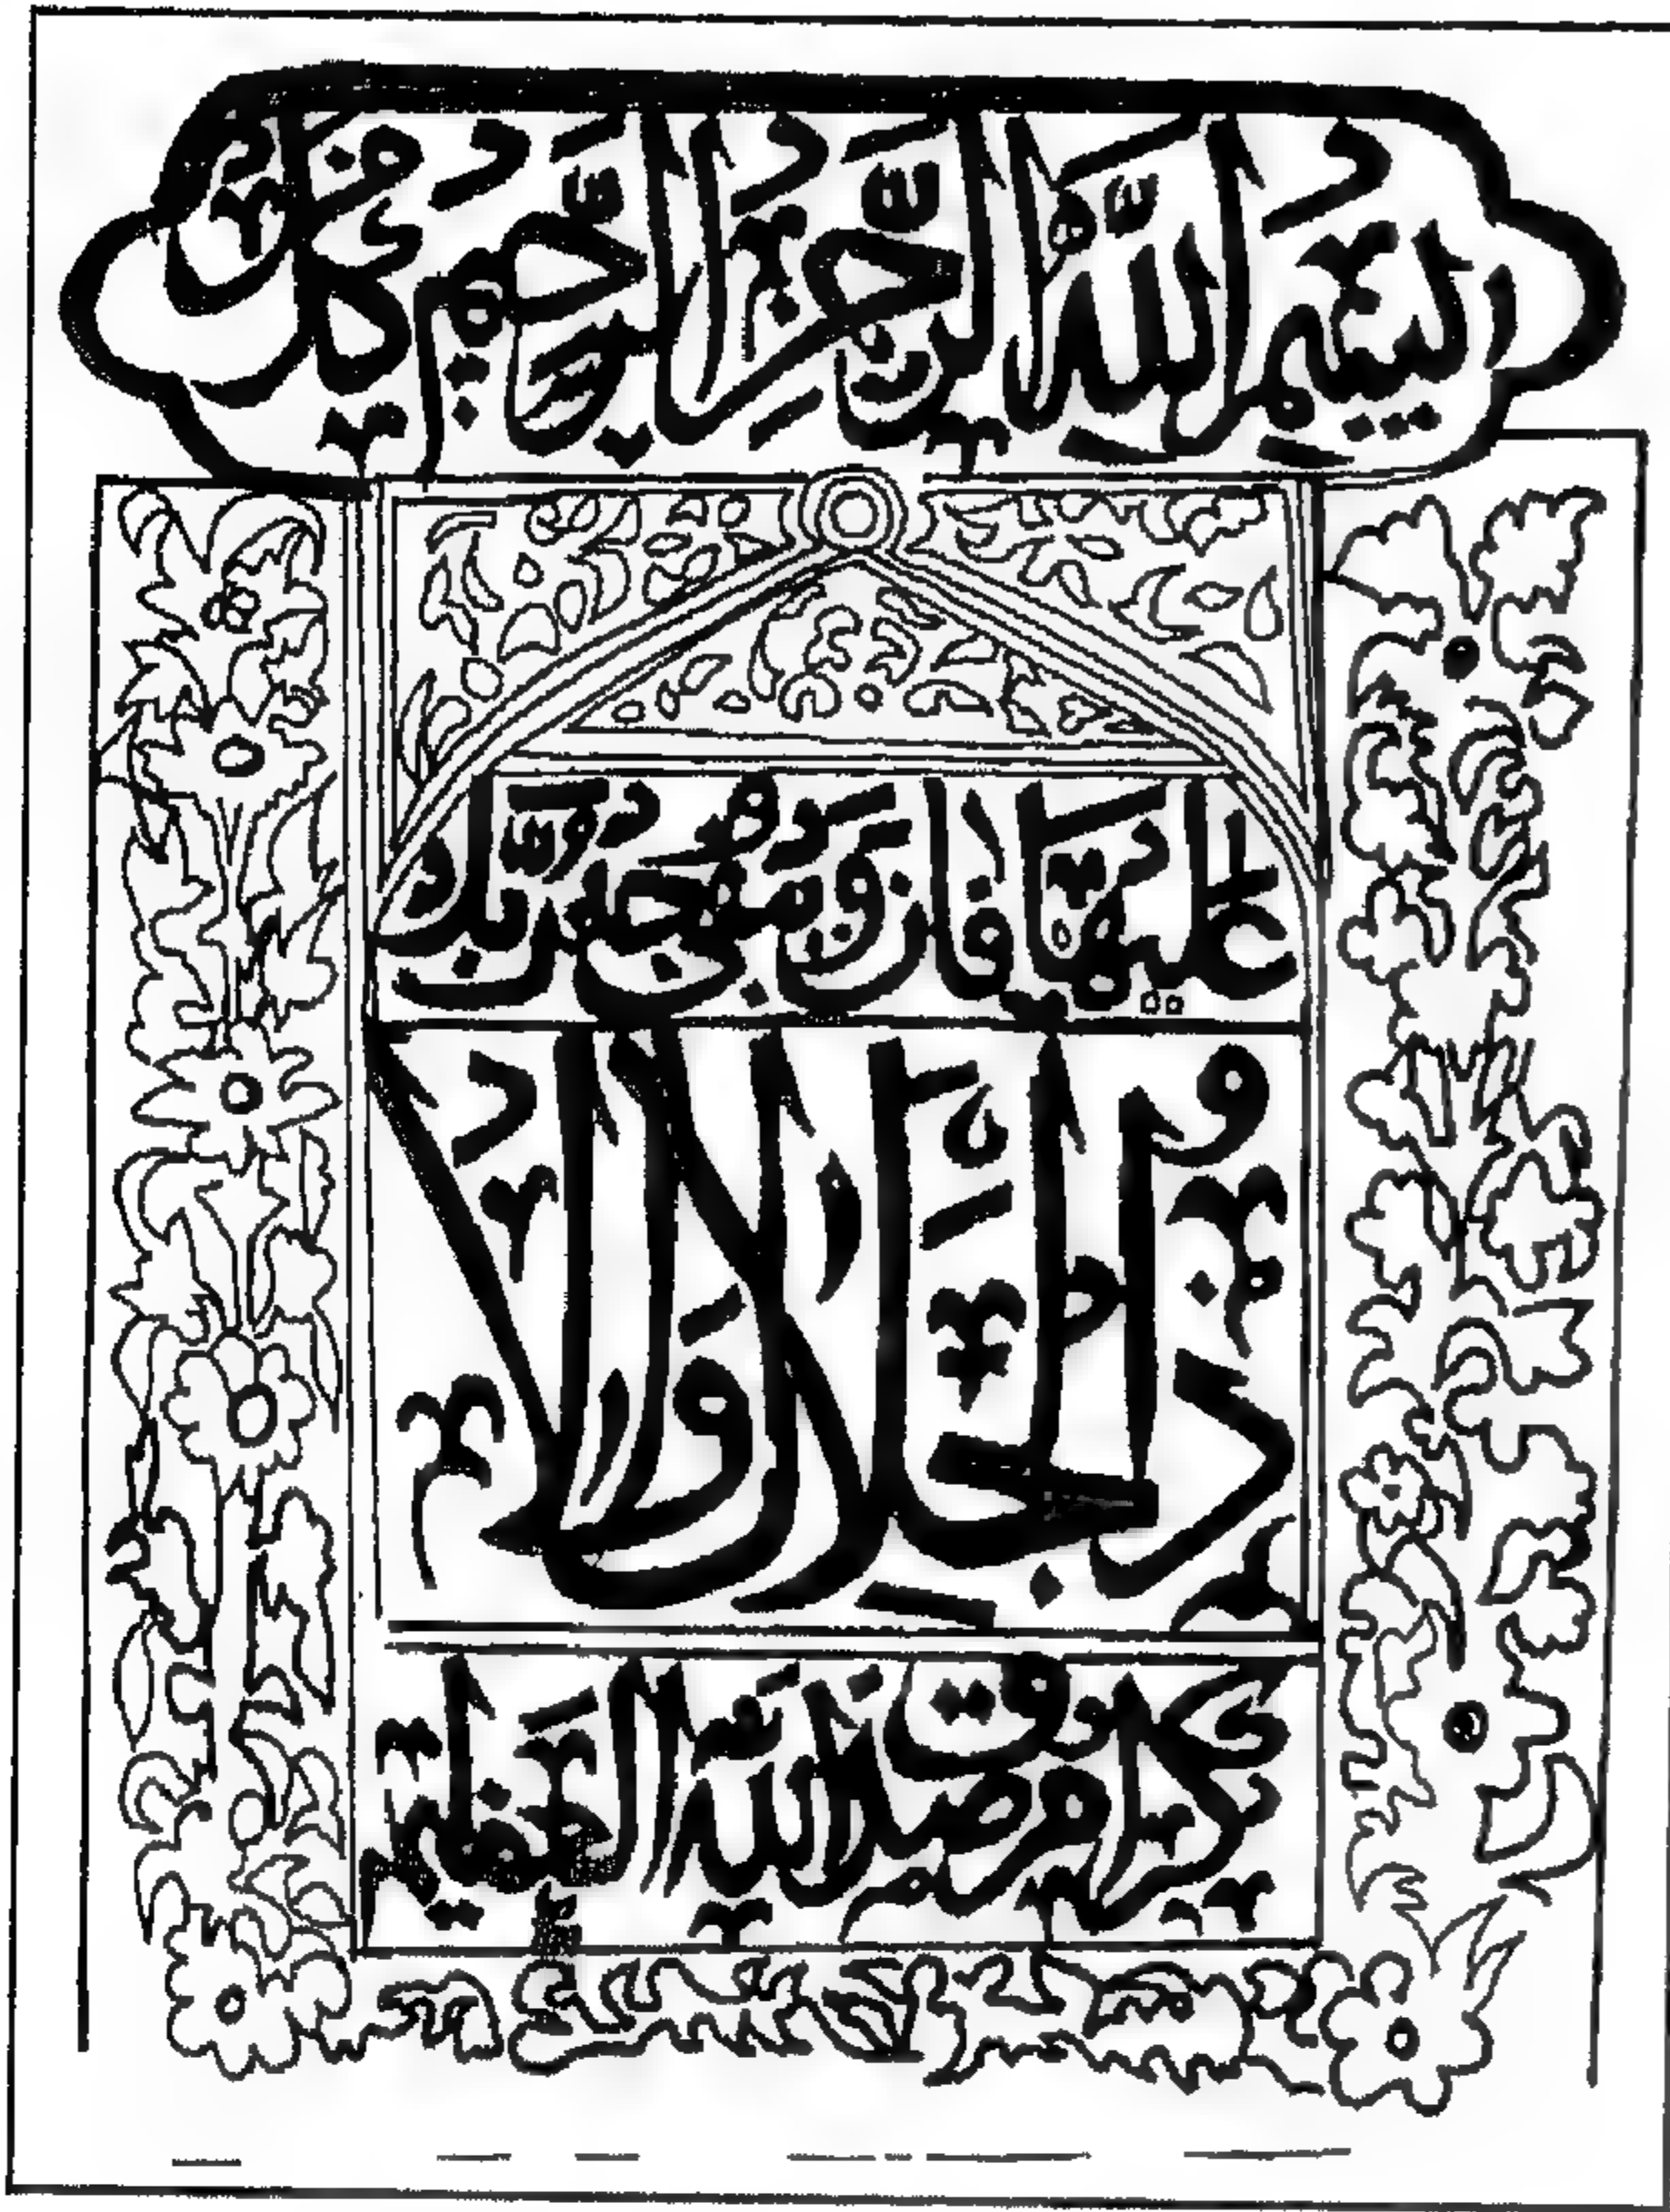 بسم الله الرحمن الرحيم كل من
عليها فان ويبقى وجه ربك
ذو الجلال والا
كرام وصدق الله العظيم